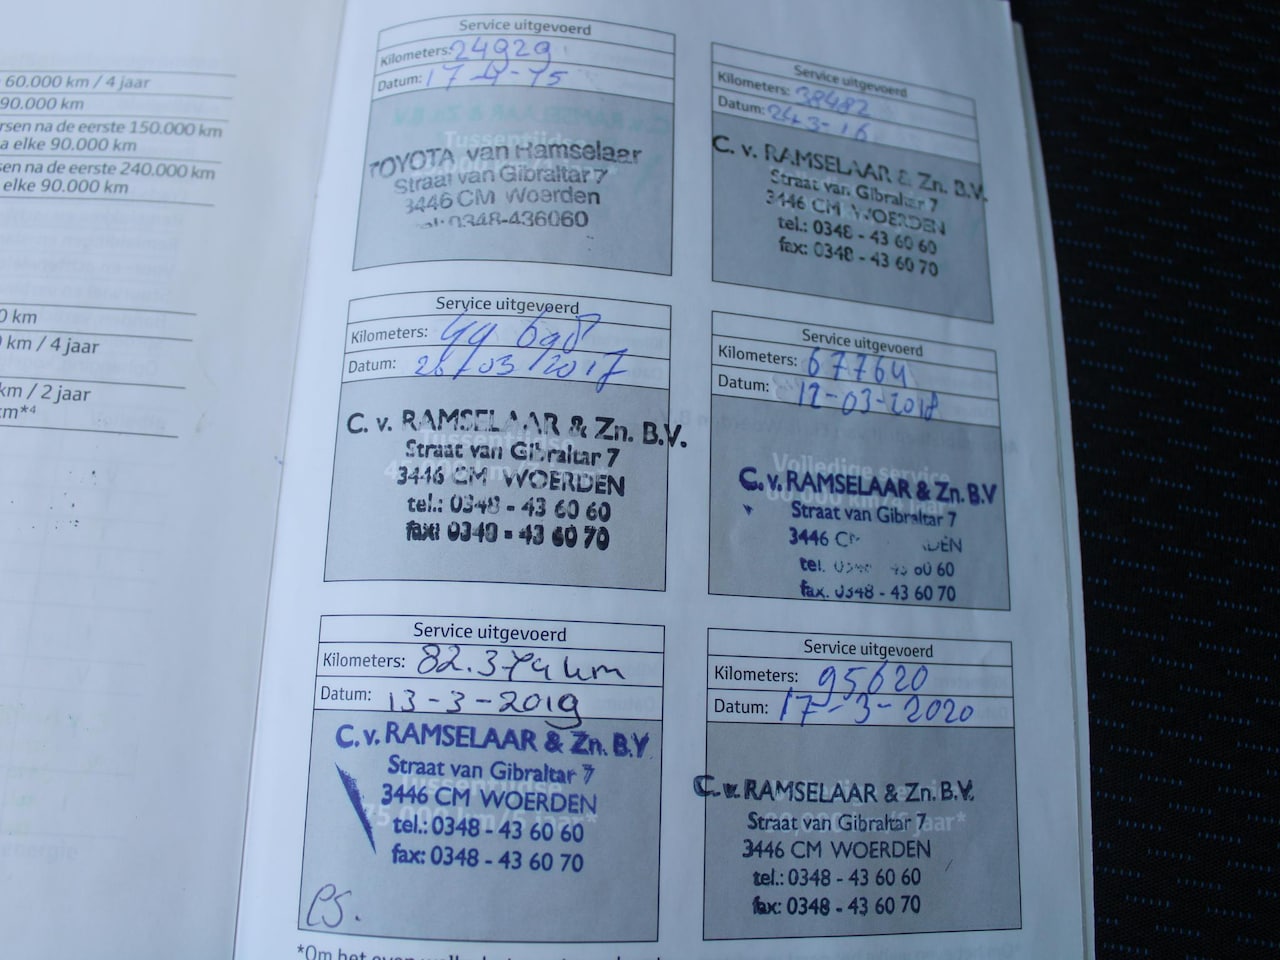 60.000 km / 4 jaar
90.000 km
rsen na de eerste 150.000 km
a elke 90.000 km
sen na de eerste 240.000 km
elke 90.000 km
0 km
km / 4 jaar
km / 2 jaar
km*4
Service uitgevoerd
Kilometers: 24929
Datum: 17-4-15
TOYOTA van Ramselaar
Straat van Gibraltar 7
3446 CM Woerden
0348-436060
Service uitgevoerd
Kilometers: 38482
Datum: 24-3-16
C. v. RAMSELAAR & Zn. B.V.
Straat van Gibraltar 7
3446 CM WOERDEN
tel.: 0348 - 43 60 60
fax: 0348 - 43 60 70
Service uitgevoerd
Kilometers:
Datum: 28/03/2017
Tussentijdse
C. v. RAMSELAAR & Zn. B.V.
Straat van Gibraltar 7
3446 CM WOERDEN
tel.: 0348 - 43 60 60
fax: 0348 - 43 60 70
Service uitgevoerd
Kilometers: 67764
Datum: 12-03-2018
Volledige service
60.000 km/4 jaar
C. v. RAMSELAAR & Zn. B.V
Straat van Gibraltar 7
3446
tel. 60
fax. 0348 - 43 60 70
Service uitgevoerd
Kilometers: km
Datum: 13-3-2019
Tussentijdse
75.000 km/5 jaar*
C. v. RAMSELAAR & Zn. B.V.
Straat van Gibraltar 7
3446 CM WOERDEN
tel.: 0348 - 43 60 60
fax: 0348 - 43 60 70
Service uitgevoerd
Kilometers: 95620
Datum: 17-3-2020
C. v. RAMSELAAR & Zn. B.V.
Straat van Gibraltar 7
3446 CM WOERDEN
tel.: 0348 - 43 60 60
fax: 0348 - 43 60 70
*Om het